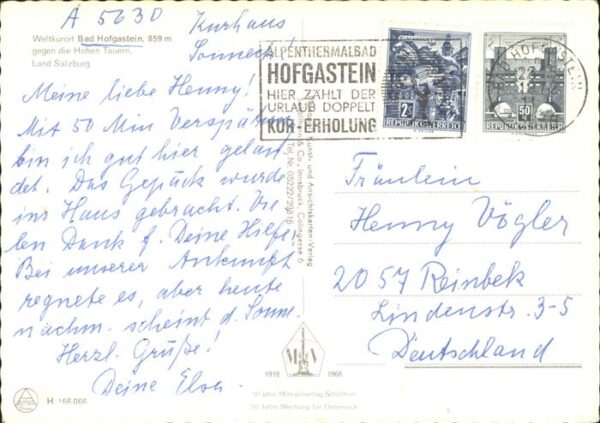 A 5630
Kurhaus
Sonneck!
Weltkurort Bad Hofgastein, 859 m
gegen die Hohen Tauern,
Land Salzburg
Meine liebe Henny!
Mit 50 Min Verspätung
bin ich gut hier gelan-
det. Das Gepäck wurde
ins Haus gebracht. Vie-
len Dank f. Deine Hilfe!
Bei unserer Ankunft
regnete es, aber heute
nachm. scheint d. Sonne.
Herzl. Grüße!
Deine Elsa
H 166 066
ALPENTHERMALBAD
HOFGASTEIN
HIER ZÄHLT DER
URLAUB DOPPELT
KUR-ERHOLUNG
2
REPUBLIK ÖSTERREICH
50
REPUBLIK ÖSTERREICH
HOFGASTEIN
Kunst- und Ansichtskarten-Verlag
& Co., Innsbruck, Colingasse 6
Tel. Nr. 05222/
Fräulein
Henny Vögler
2057 Reinbek
Lindenstr. 3-5
Deutschland
M V
1918 1968
50 Jahre
50 Jahre Werbung für Österreich